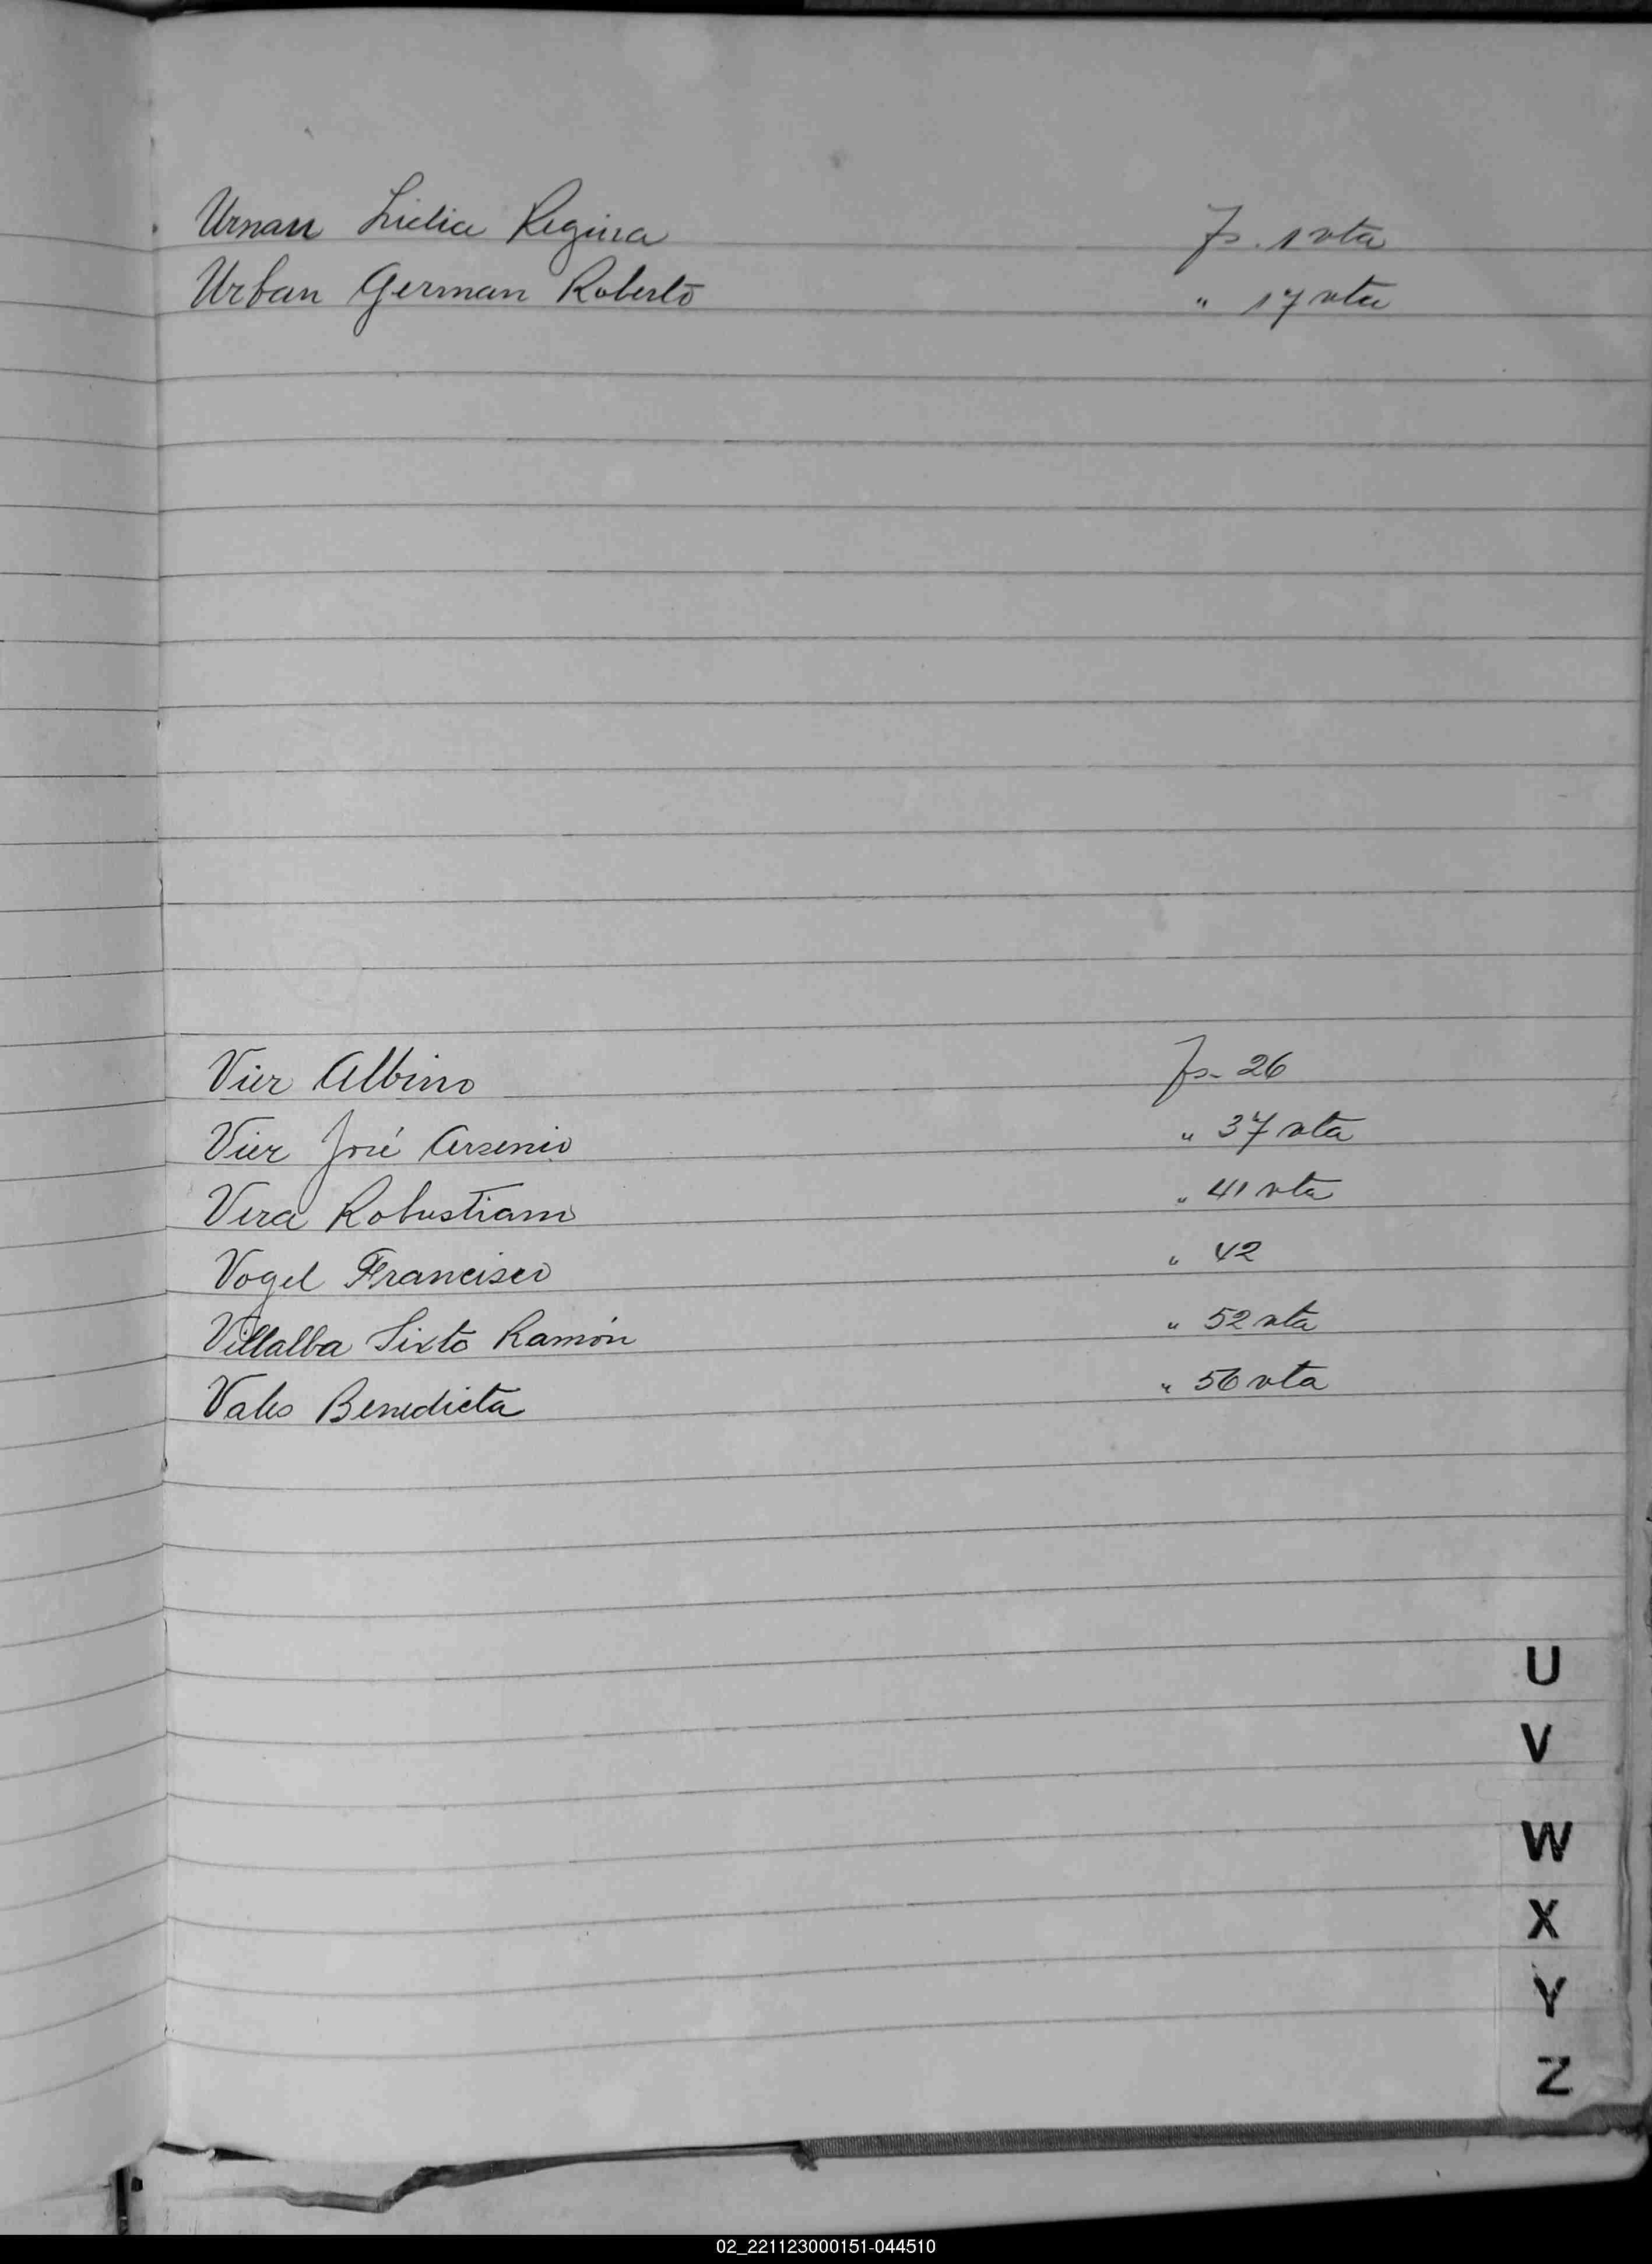 Urnau Lidia Regina Fs. 1 vta
Urban German Roberto " 17 vta
Vier Albino Fs. 26
Vier José Arsenio " 37 vta
Vera Robustiano " 41 vta
Vogel Francisco " 42
Villalba Sixto Ramón " 52 vta
Benedicta " 56 vta
U
V
W
X
Y
Z
02_221123000151-044510